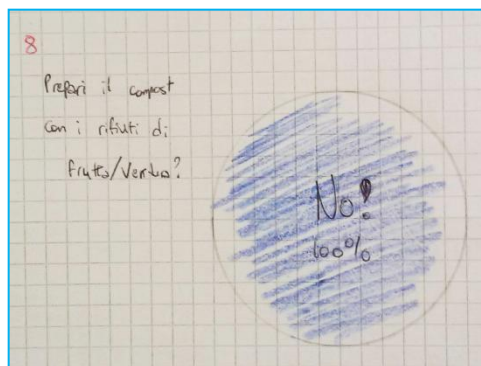 8
Prepari il compost
con i rifiuti di
frutta/verdura?
No!
100%